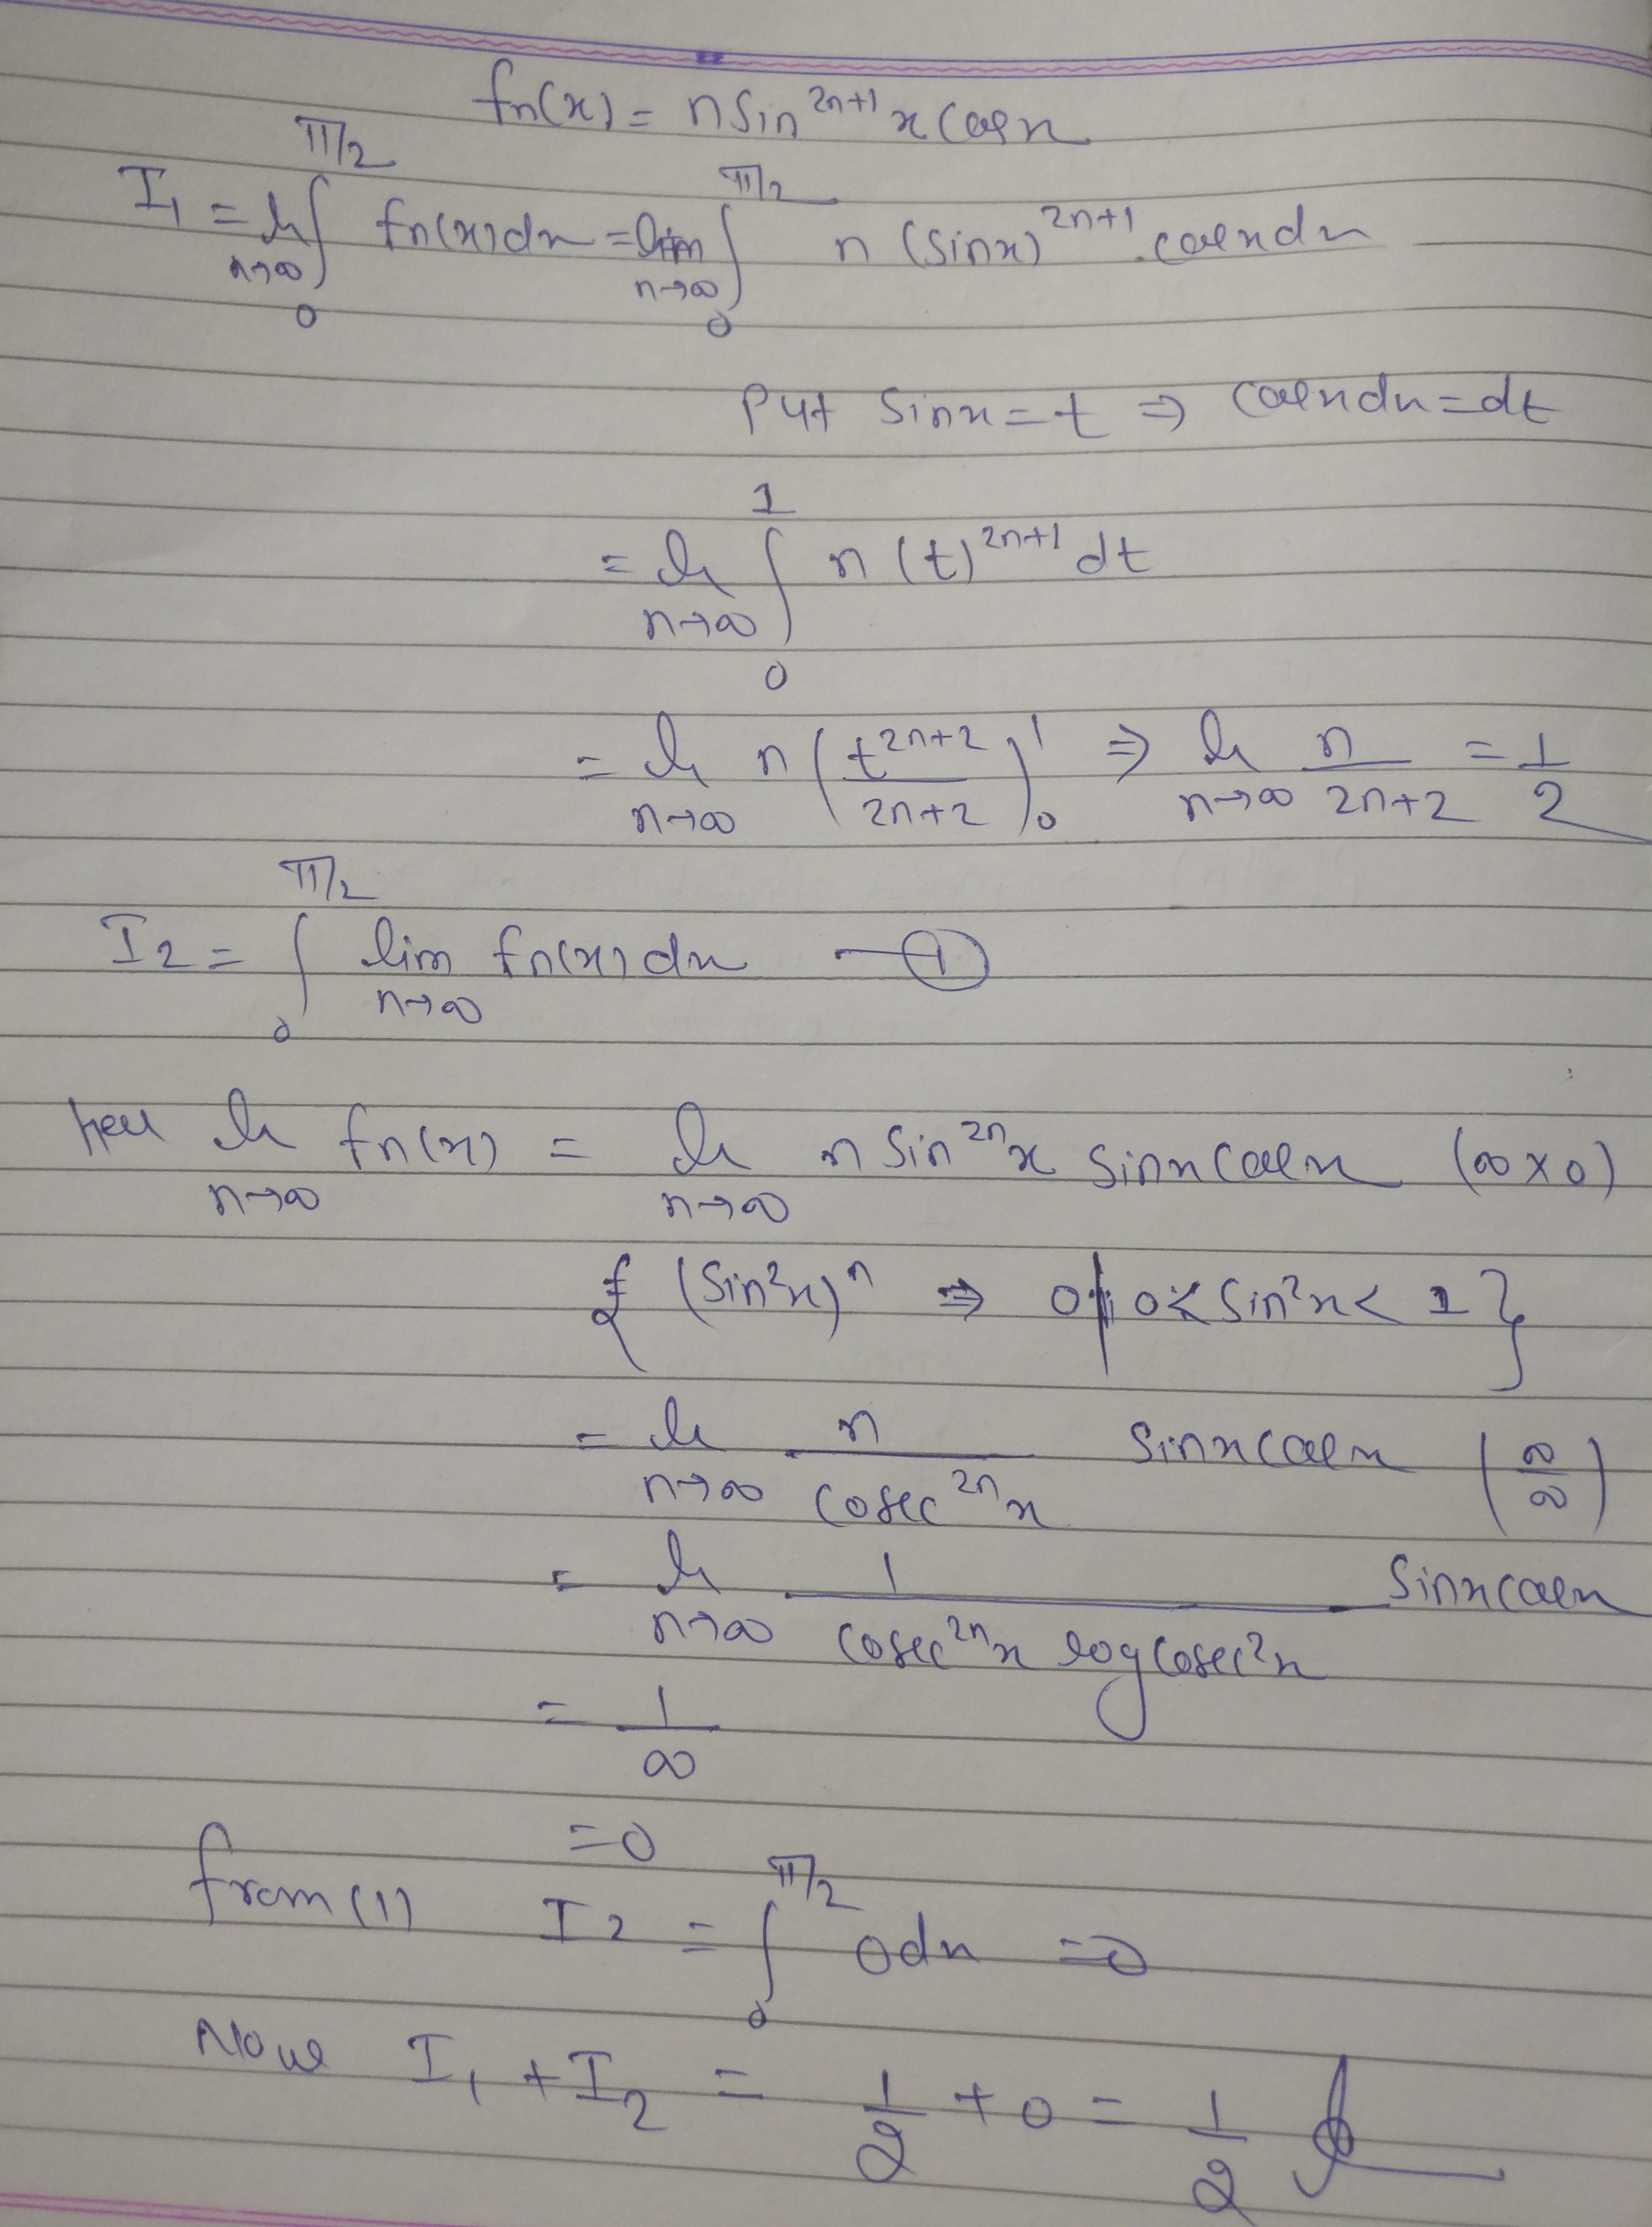 fn(x) = n Sin^{2n+1} x cosx
I₁ = lim_{n→∞} ∫_0^{π/2} fn(x)dx = lim_{n→∞} ∫_0^{π/2} n (sinx)^{2n+1} . cosxdx
Put Sinx = t ⇒ cosxdx = dt
= lim_{n→∞} ∫_0^1 n (t)^{2n+1} dt
= lim_{n→∞} n (t^{2n+2}/2n+2)_0^1 ⇒ lim_{n→∞} n/2n+2 = 1/2
I₂ = ∫_0^{π/2} lim_{n→∞} fn(x)dx — ①
here lim_{n→∞} fn(x) = lim_{n→∞} n Sin^{2n}x Sinx cosx (∞ × 0)
{ (Sin²x)^n ⇒ 0 | 0 < Sin²x < 1 }
= lim_{n→∞} n/cosec^{2n}x Sinx cosx (∞/∞)
= lim_{n→∞} 1/cosec^{2n}x log cosec²x Sinx cosx
= 1/∞
= 0
from (1) I₂ = ∫_0^{π/2} 0 dx = 0
Now I₁ + I₂ = 1/2 + 0 = 1/2